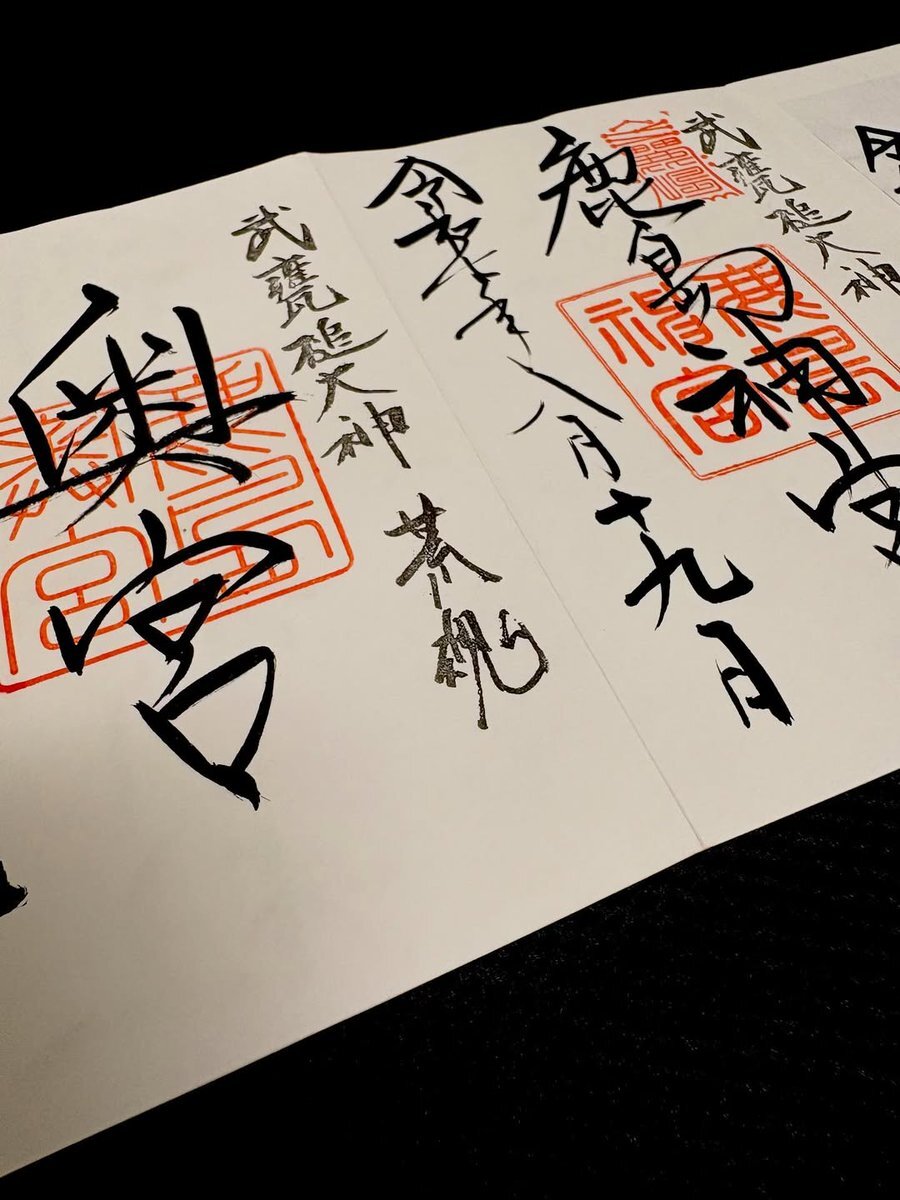 武甕槌大神
鹿島神宮
鹿島神宮
令和七年八月十九日
武甕槌大神
荒魂
奥宮